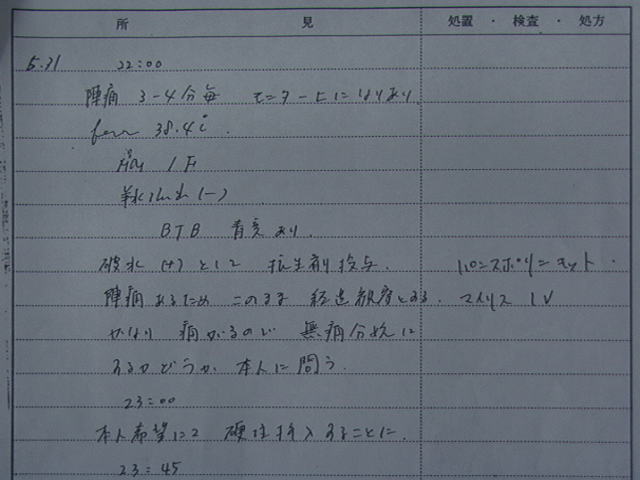 所 見 処置 ・ 検査 ・ 処方
5.31 22:00
陣痛 3-4分毎 モニター上にはりあり
38.4
1F
羊水 (-)
BTB 青変あり.
破水(+)として 抗生剤投与. パンスポリンキット.
陣痛あるため このまま 経過観察とする. マイリス 1V
かなり 痛がるので 無痛分娩に
するかどうか 本人に問う.
23:00
本人希望にて 硬注挿入することに.
23:45